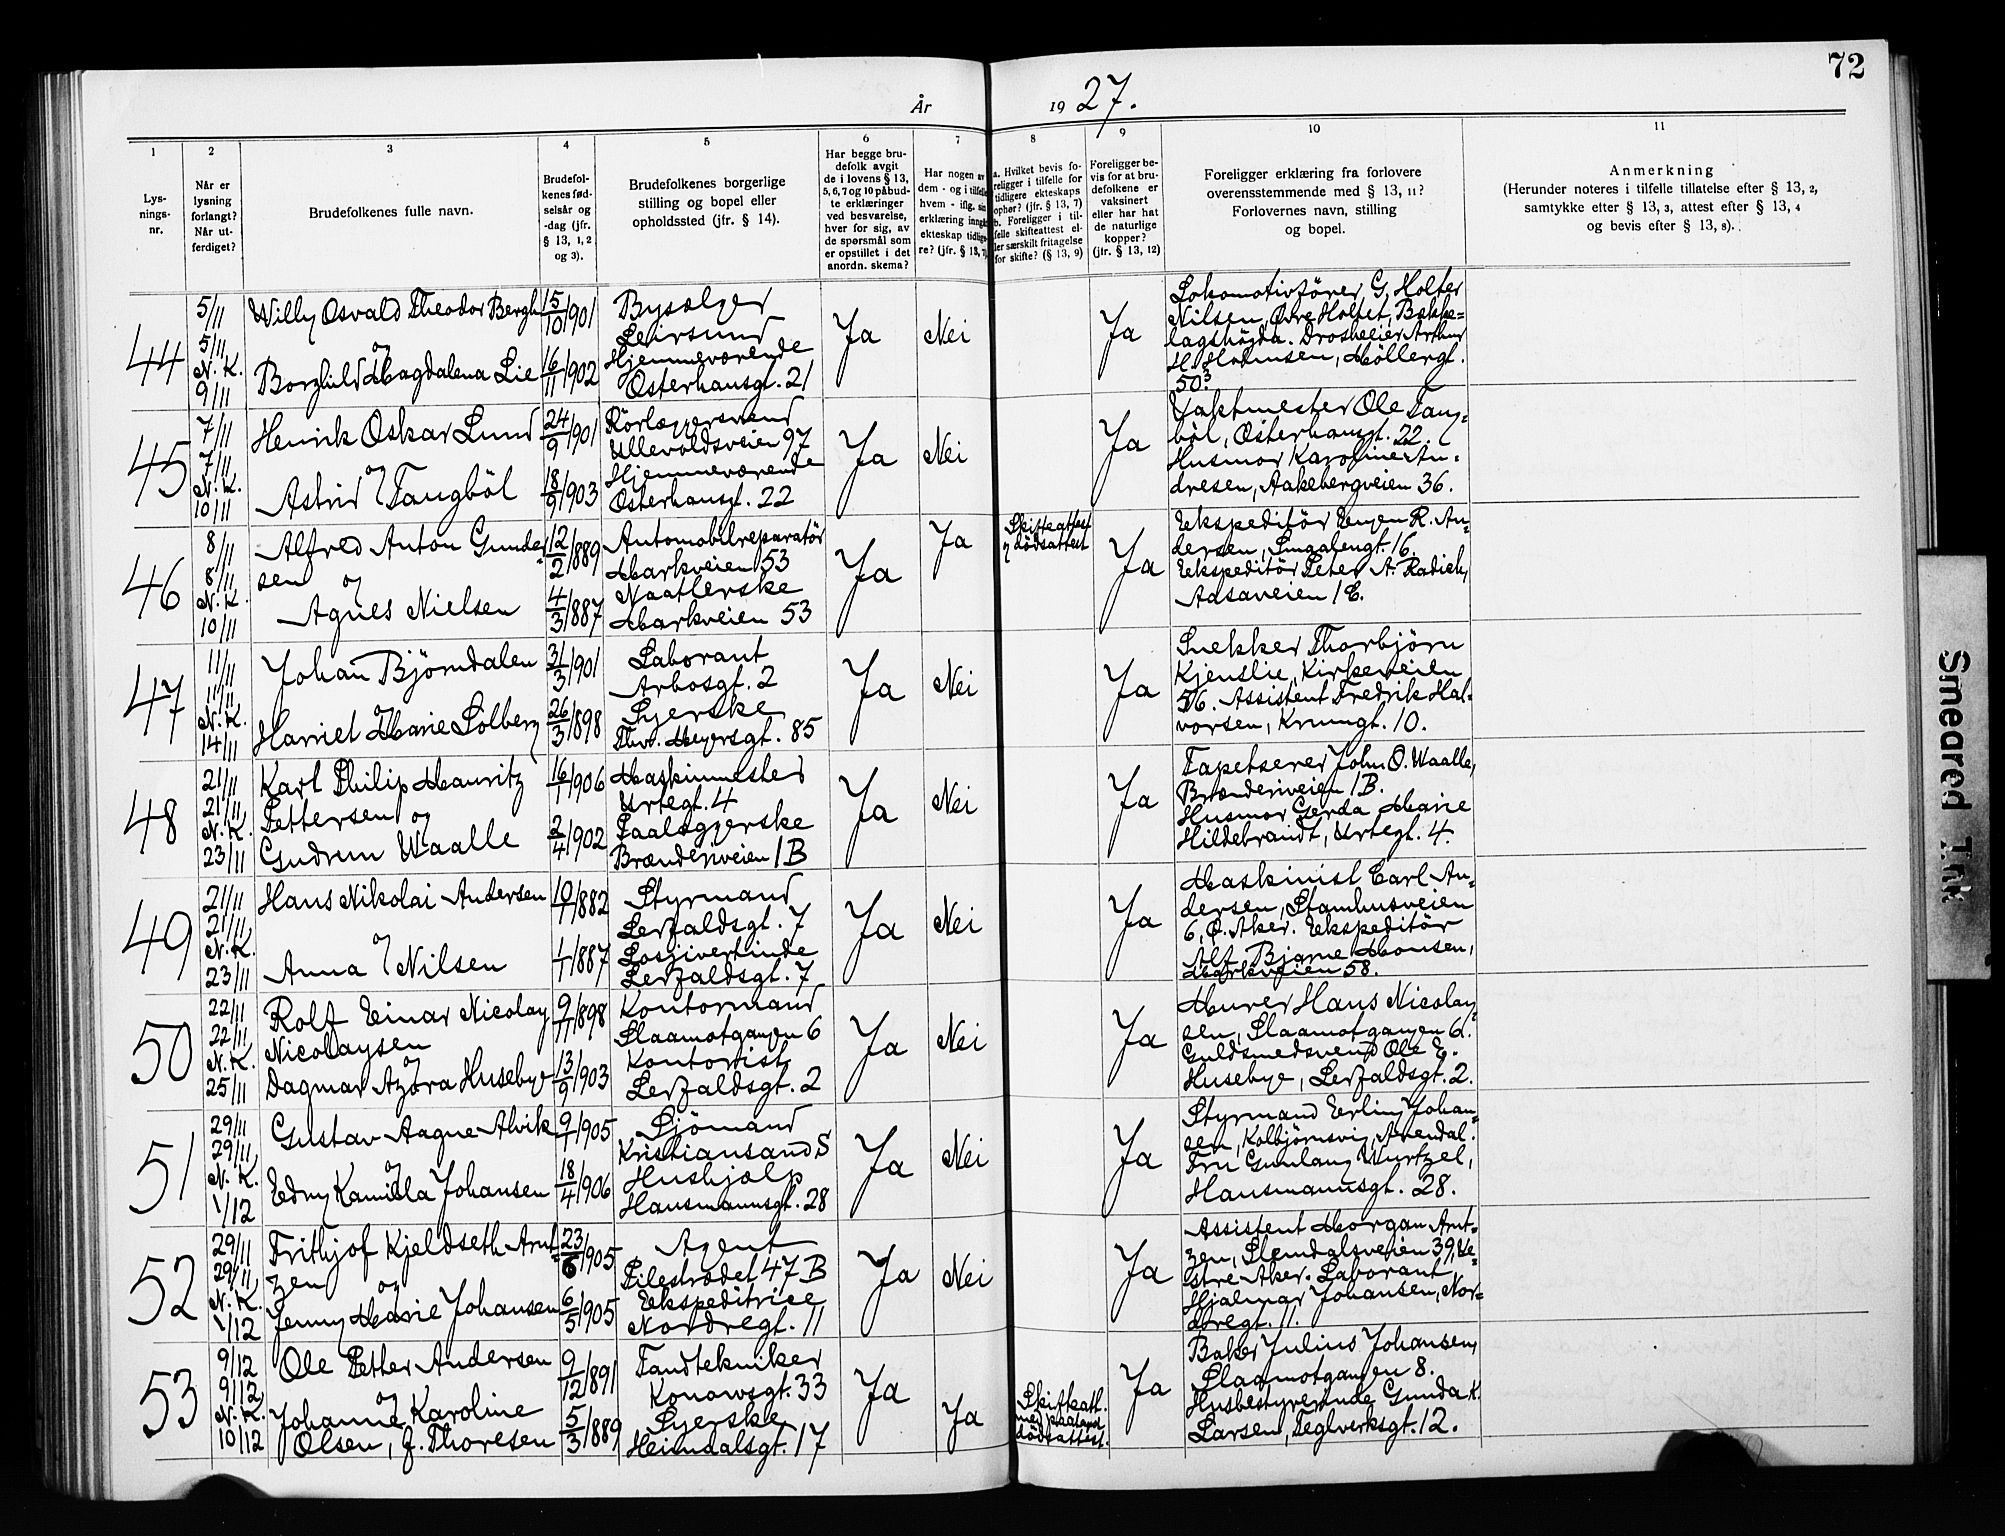 72
År 1927.
1
2
3
4
5
6
7
8
9
10
11
Lys-
nings-
nr.
Når er
lysning
forlangt?
Når ut-
ferdiget?
Brudefolkenes fulle navn.
Brudefol-
kenes fød-
selsår og
-dag (jfr.
§ 13, 1, 2
og 3).
Brudefolkenes borgerlige
stilling og bopel eller
opholdssted (jfr. § 14).
Har begge bru-
defolk avgit
de i lovens § 13,
5, 6, 7 og 10 påbud-
te erklæringer
ved besvarelse,
hver for sig, av
de spørsmål som
er opstillet i det
anordn. skema?
Har nogen av
dem - og i tilfelle
hvem - iflg. sin
erklæring inngått
ekteskap tidlige-
re? (jfr. § 13, 7)
a. Hvilket bevis fo-
religger i tilfelle for
tidligere ekteskaps
ophør? (jfr. § 13, 7)
b. Foreligger i til-
felle skifteattest el-
ler særskilt fritagelse
for skifte? (§ 13, 9)
Foreligger be-
vis for at bru-
defolkene er
vaksinert
eller har hat
de naturlige
kopper?
(jfr. § 13, 12)
Foreligger erklæring fra forlovere
overensstemmende med § 13, 11?
Forlovernes navn, stilling
og bopel.
Anmerkning
(Herunder noteres i tilfelle tillatelse efter § 13, 2,
samtykke efter § 13, 3, attest efter § 13, 4
og bevis efter § 13, 8).
44
5/11
5/11
N. K.
9/11
Willy Osvald Theodor Bergh
og
Borghild Magdalena Lie
15/10 1901
16/11 1902
Bysælger
Leirsund
Hjemmeværende
Osterhausgt. 21
Ja
Nei
Ja
Lokomotivförer G. Holter
Nilsen, Övre Holtet, Bække-
lagshögda. Drosheeier Arthur
H. Holmsen, Möllergt.
50³.
45
7/11
7/11
N. K.
10/11
Henrik Oskar Lund
og
Astrid Tangböl
24/9 1901
18/9 1903
Rörlæggersvend
Ullevoldsveien 97
Hjemmeværende
Osterhausgt. 22
Ja
Nei
Ja
Vaktmester Ole Tang-
böl, Osterhausgt. 22.
Husmor Karoline An-
dresen, Aakebergveien 36.
46
8/11
8/11
N. K.
10/11
Alfred Anton Gunder-
sen og
Agnes Nielsen
12/2 1889
4/3 1887
Automobilreparatör
Markveien 53
Naatlerske
Markveien 53
Ja
Ja
Skifteattest
og dödsattest
Ja
Ekspeditör Eugen R. An-
dersen, Smaalengt. 16.
Ekspeditör Peter A. Radich,
Adsaveien 1 C.
47
11/11
11/11
N. K.
14/11
Johan Björndalen
og
Harriet Marie Solberg
31/3 1901
26/3 1898
Laborant
Arbosgt. 2
Syerske
Thv. Meyersgt. 85
Ja
Nei
Ja
Snekker Thorbjörn
Kjenslie, Kirkeveien
56. Assistent Fredrik Hal-
vorsen, Krumgt. 10.
48
21/11
21/11
N. K.
23/11
Karl Philip Mauritz
Pettersen og
Gudrun Waalle
16/1 1906
2/4 1902
Maskinmester
Urtegt. 4
Paalsgyerske
Brænderiveien 1 B
Ja
Nei
Ja
Tapetserer John O. Waalle,
Brænderiveien 1 B.
Husmor Gerda Marie
Hildebrandt, Urtegt. 4.
49
21/11
21/11
N. K.
23/11
Hans Nikolai Andersen
og
Anna Nilsen
19/1 1882
1/1 1887
Styrmand
Lerfaldsgt. 7
Losjivertinde
Lerfaldsgt. 7
Ja
Nei
Ja
Maskinist Carl An-
dersen, Stamhusveien
6, Ö. Aker. Ekspeditör
Alf Bjarne Monsen,
Markveien 58.
50
22/11
22/11
N. K.
25/11
Rolf Einar Nicolay
Nicolaysen
og
Dagmar Azora Husebye
9/11 1898
13/9 1903
Kontormand
Slaamotgangen 6
Kontorist
Lerfaldsgt. 2
Ja
Nei
Ja
Murer Hans Nicolay-
sen, Slaamotgangen 6.
Guldsmedsvend Ole E.
Husebye, Lerfaldsgt. 2.
51
29/11
29/11
N. K.
1/12
Gustav Aagne Alvik
og
Edny Kamilla Johansen
9/1 1905
18/4 1906
Sjömand
Kristiansand S
Hushjælp
Hausmannsgt. 28
Ja
Nei
Ja
Styrmand Erling Johan-
sen, Kolbjörnsvig, Arendal.
Fru Gunlaug Wurtzel,
Hausmannsgt. 28.
52
29/11
29/11
N. K.
1/12
Frithjof Kjeldseth Arnt-
zen og
Jenny Marie Johansen
23/6 1905
6/5 1905
Agent
Pilestrædet 47 B
Ekspeditrice
Nordregt. 11
Ja
Nei
Ja
Assistent Morgan Arnt-
zen, Slemdalsveien 39, Ve-
stre Aker. Laborant
Hjalmar Johansen, Nor-
dregt. 11.
53
9/12
9/12
N. K.
10/12
Ole Petter Andersen
og
Johanne Karoline
Olsen, f. Thoresen
9/12 1891
5/3 1889
Tandtekniker
Konowsgt. 33
Syerske
Heimdalsgt. 17
Ja
Ja
Skifteatt.
med paategnd
dödsattest.
Ja
Baker Julius Johansen,
Slaamotgangen 8.
Husbestyrerinde Gunda K.
Larsen, Teglverksgt. 12.
Smeared Ink